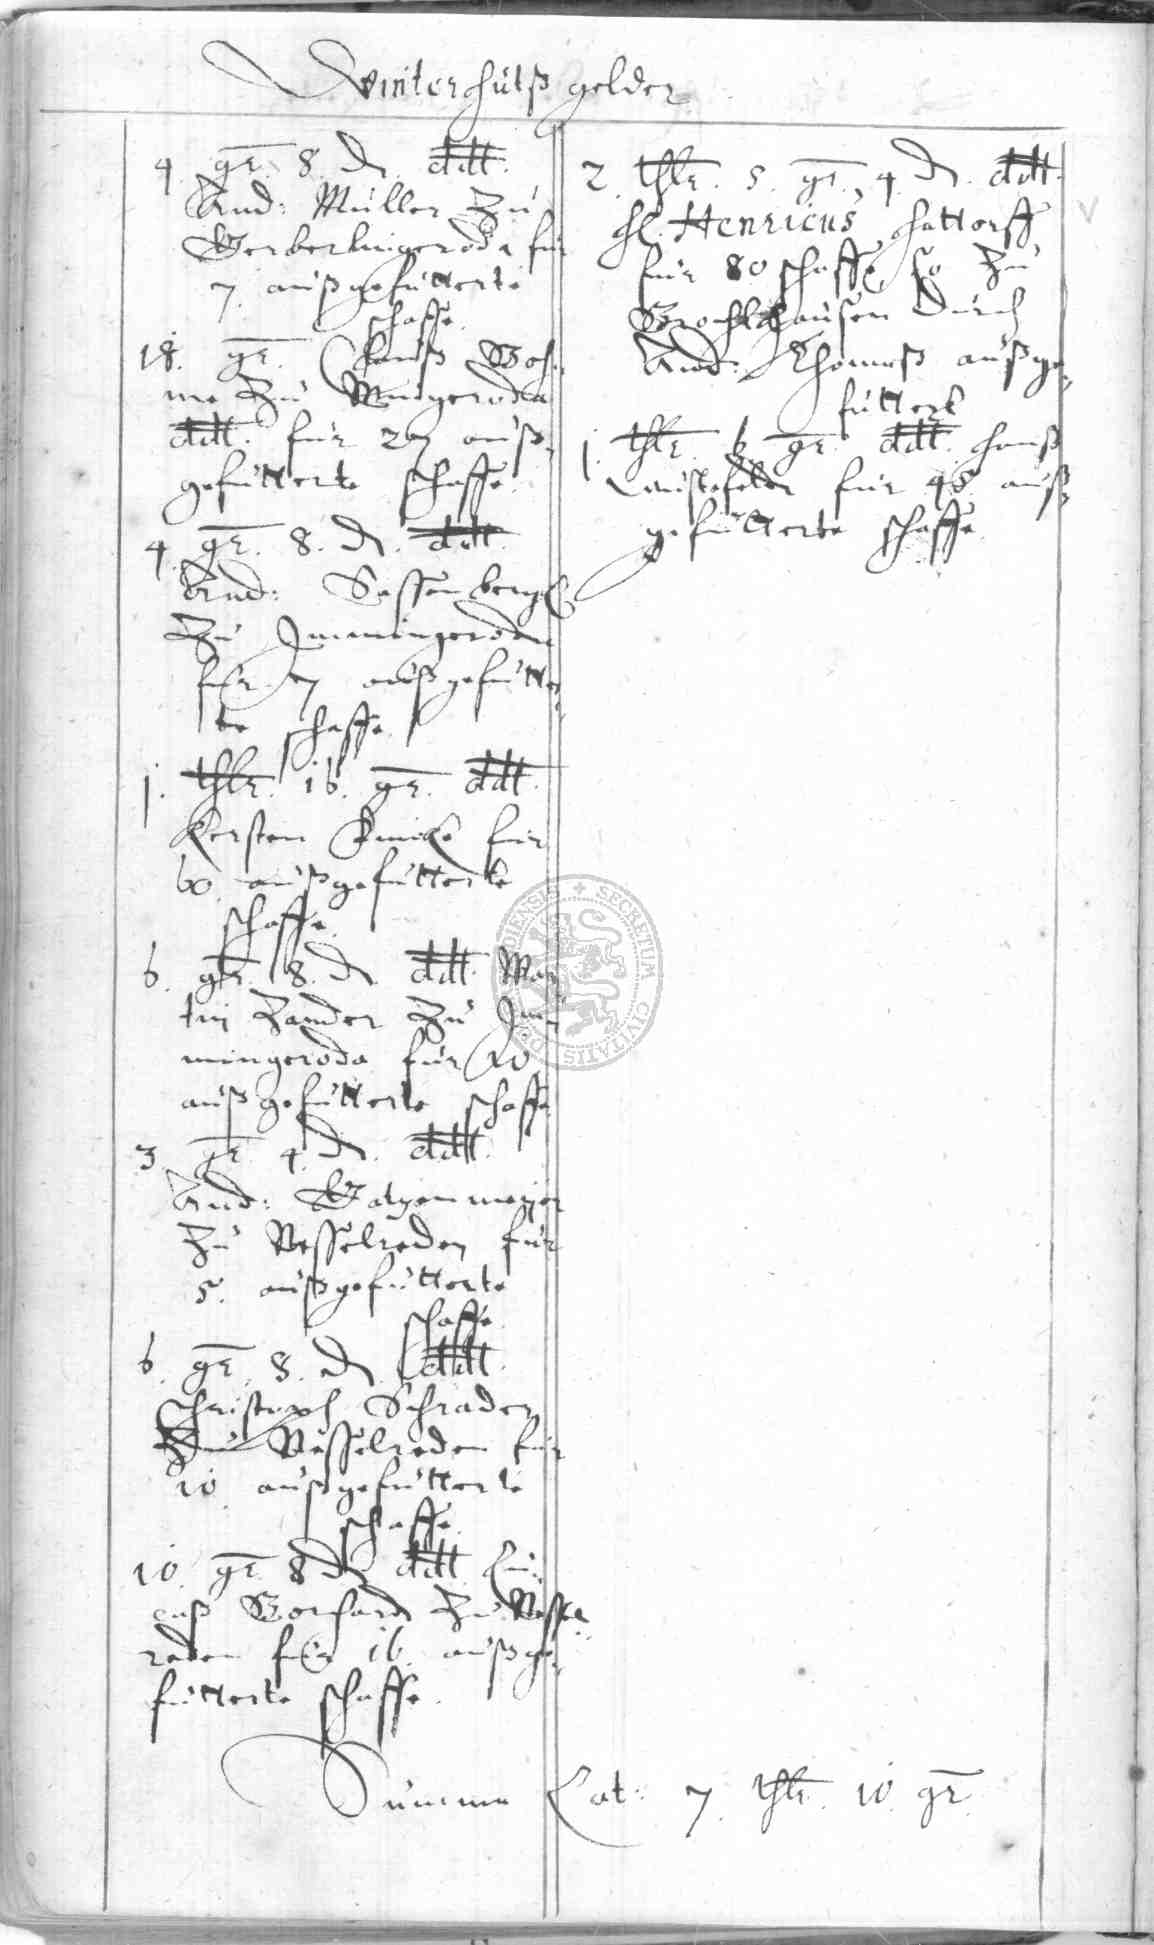 Winterhüts gelder
4. gr. 8. d. ddt.
And: Müller zu
Gerberlingeroda für
7. außgefütterte
schaffe.
18. gr. Hanß Boh-
me zu Wingeroda
ddt. für 27 auß-
gefütterte schaffe.
4. gr. 8. d. ddt.
And: Sassenbergk
zu Immingeroda
für 7 außgefütter-
te schaffe.
1. thlr. 16. gr. ddt.
Kersten für
60 außgefütterte
schaffe.
6. gr. 8. d. ddt. Mar-
tin Zander zu Im-
mingeroda für 10
außgefütterte schaffe
3 gr. 4. d. ddt.
And: Gatzenmeyer
zu Wesselreden für
5. außgefütterte
schaffe.
6. gr. 8. d. ddt.
Christoph Schrader
zu Wesselreden für
10 außgefütterte
schaffe.
10. gr. 8 d. ddt. Lu-
caß Gerhard zu Wessel-
reden für 16. außge-
fütterte schaffe.
2. thlr. 5. gr. 4. d. ddt.
H. Henricus Hattorff
für 80 schaffe, so zu
Brochthausen durch
And: Thomaß außge-
füttert
1. thlr. 6. gr. ddt. Hanß
Leustefelder für 45. auß-
gefütterte schaffe
Summa Lat: 7. thlr. 10 gr.
SECRETUM CIVITATIS